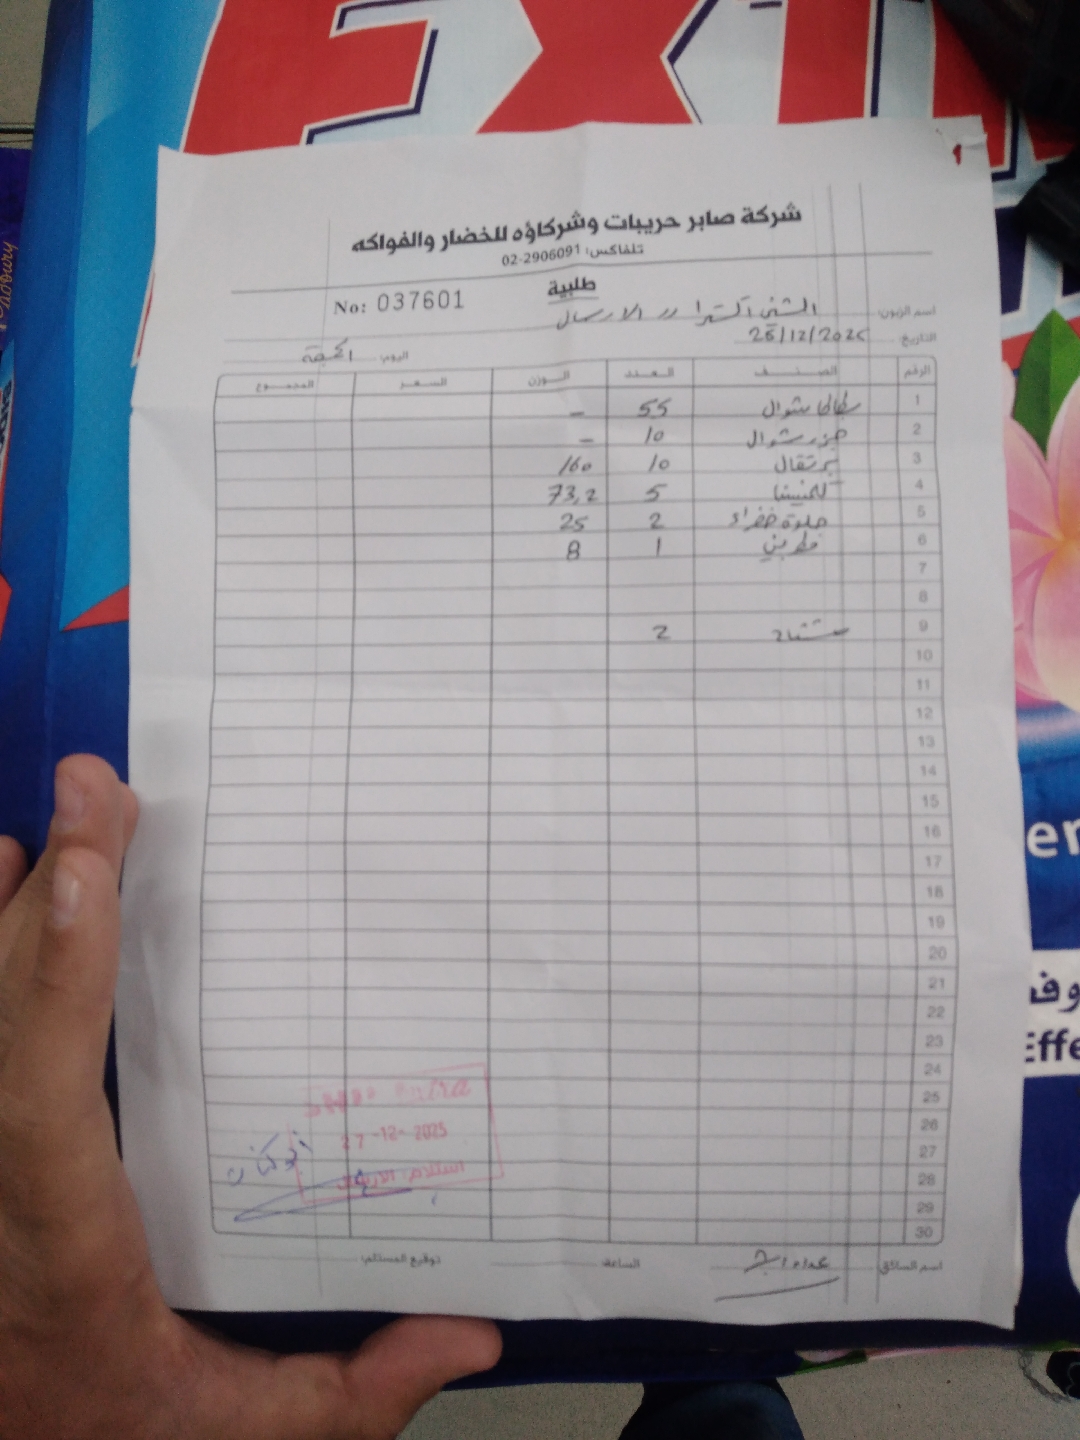 شركة صابر حريبات وشركاؤه للخضار والفواكه
تلفاكس: 02-2906091
طلبية
No: 037601
اسم الزبون: الشني اكسترا الارسال
التاريخ: 26/12/2025
اليوم: الجمعة
الرقم الصنف العدد الوزن السعر المجموع
1 بطاطا شوال 55 -
2 جزر شوال 10 -
3 برتقال 10 160
4 كلمنتينا 5 73,2
5 خضراء 2 25
6 1 8
7
8
9 2
10
11
12
13
14
15
16
17
18
19
20
21
22
23
24
25
26
27
28
29
30
27-12-2025
استلام
اسم السائق: الساعة: توقيع المستلم:
EXTRA
er
وف
Effe